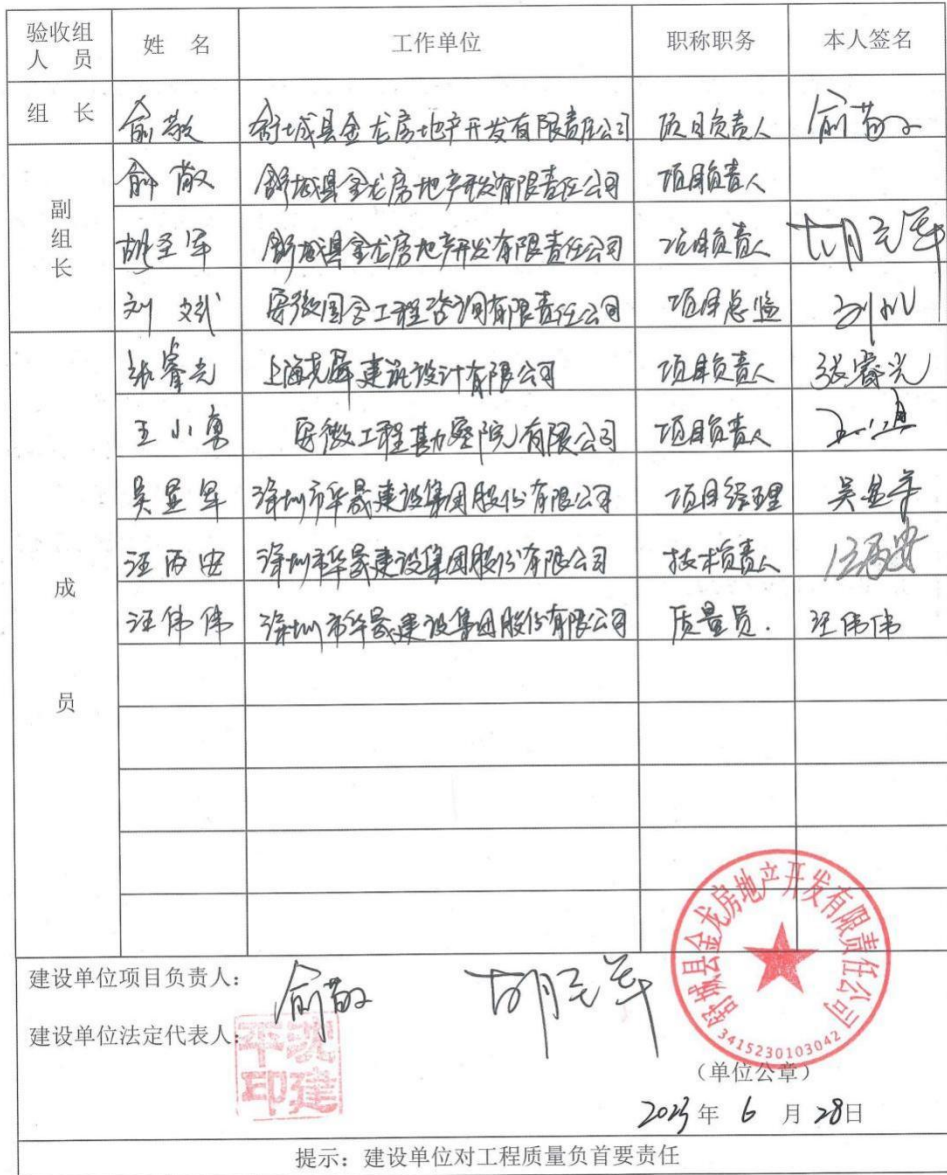 验收组人员 姓 名 工作单位 职称职务 本人签名
组 长 俞敬 舒城县金龙房地产开发有限责任公司 项目负责人 俞敬
副组长 俞敬 舒城县金龙房地产开发有限责任公司 项目负责人
胡圣军 舒城县金龙房地产开发有限责任公司 项目负责人 胡圣军
刘斌 安徽国合工程咨询有限责任公司 项目总监
成员 张睿光 上海 建筑设计有限公司 项目负责人 张睿光
王小勇 安徽工程勘察院有限公司 项目负责人 王小勇
吴显军 深圳市华晟建设集团股份有限公司 项目经理 吴显军
汪丙安 深圳市华晟建设集团股份有限公司 技术负责人 汪丙安
汪伟伟 深圳市华晟建设集团股份有限公司 质量员. 汪伟伟
建设单位项目负责人: 俞敬 胡圣军
建设单位法定代表人:
沈建平印
舒城县金龙房地产开发有限责任公司
3415230103042
(单位公章)
2023年 6 月 28日
提示:建设单位对工程质量负首要责任